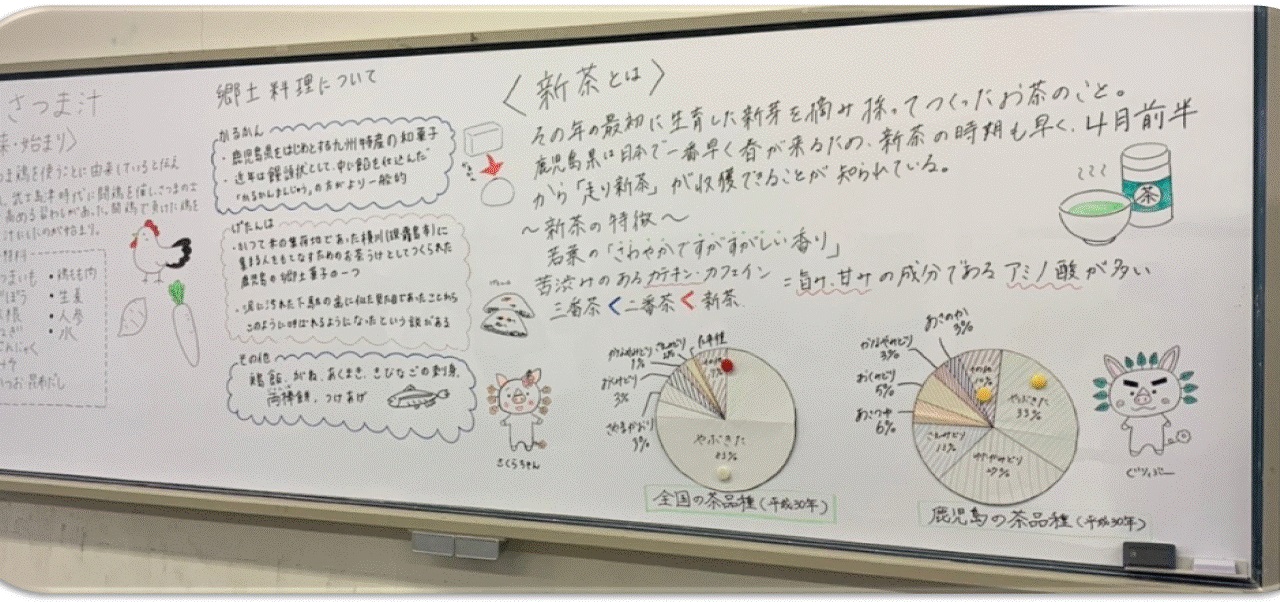 さつま汁
始まり〉
鶏を使うことに由来していると伝え
島津時代に闘鶏を催し、さつまの士
高める習わしがあった。闘鶏で負けた鶏を
汁にしたのが始まり。
材料
つまいも ・鶏もも肉
ごぼう ・生姜
大根 ・人参
ねぎ ・水
こんにゃく
かつお昆布だし
郷土料理について
かるかん
・鹿児島県をはじめとする九州特産の和菓子
・近年は饅頭状として、中に餡を仕込んだ
「かるかんまんじゅう」の方がより一般的
げたんは
・かつて米の集荷地であった横川(現霧島市)に
集まる人をもてなすためのお茶うけとしてつくられた
鹿児島の郷土菓子の一つ
・泥に汚れた下駄の歯に似た見た目であったことから
このように呼ばれるようになったという説がある
その他
鶏飯、がね、あくまき、きびなごの刺身、
両棒餅、つけあげ
さくらちゃん
〈新茶とは〉
その年の最初に生育した新芽を摘み採ってつくったお茶のこと。
鹿児島県は日本で一番早く春が来るため、新茶の時期も早く、4月前半
から「走り新茶」が収穫できることが知られている。
～新茶の特徴～
若葉の「さわやかですがすがしい香り」
苦渋みのあるカテキン・カフェイン = 旨み、甘みの成分であるアミノ酸が多い
三番茶<二番茶<新茶
茶
1%
おくみどり
3%
さやまかおり
3%
やぶきた
全国の茶品種(平成30年)
あさのか
3%
かなやみどり
3%
おくみどり
5%
あさつゆ
6%
さえみどり
13%
ゆたかみどり
27%
やぶきた
33%
その他
10%
鹿児島の茶品種(平成30年)
ぐりぶー